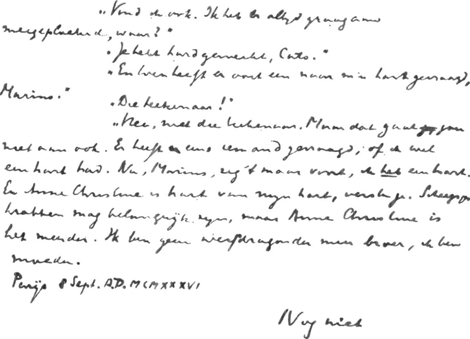 „Vond ik ook. Ik heb er altijd graag aan
meegeplakt, waar?"
„Je hebt hard gewerkt, Cato."
„En toen heeft er ooit een naar m'n hart gevraagd,
Marius."
„Die teekenaar!"
„Nee, niet die teekenaar. Maar dat gaat jou
niet aan ook. Er heeft eens iemand gevraagd, of ik wel
een hart had. Nu, Marius, zeg 't maar voort, ik het een hart.
En Anne Christine is hart van mijn hart, versta je. Scheepjes
krabben mag belangrijk zijn, maar Anne Christine is
het meeste. Ik ben geen werfdragonder meer broer, ik ben
moeder.
Parijs 8 Sept. A.D. MCMXXXVI
Nog niet